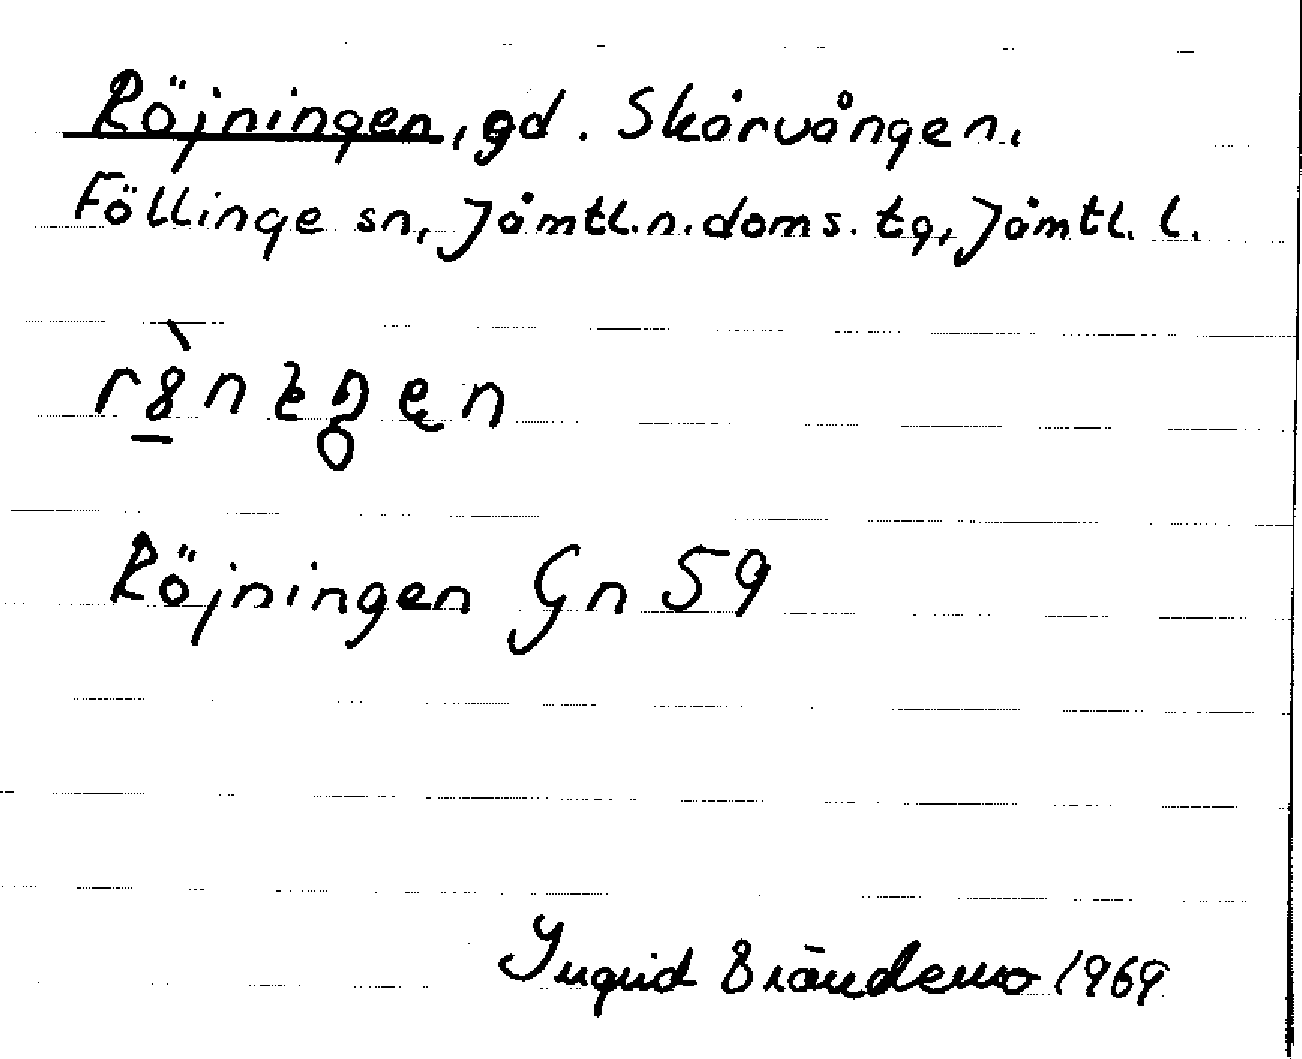 Röjningen, gd. Skärvången,
Föllinge sn, Jämtl. n. doms. tg, Jämtl. l.
Röjningen Gn 59
Ingrid Brändemo 1969